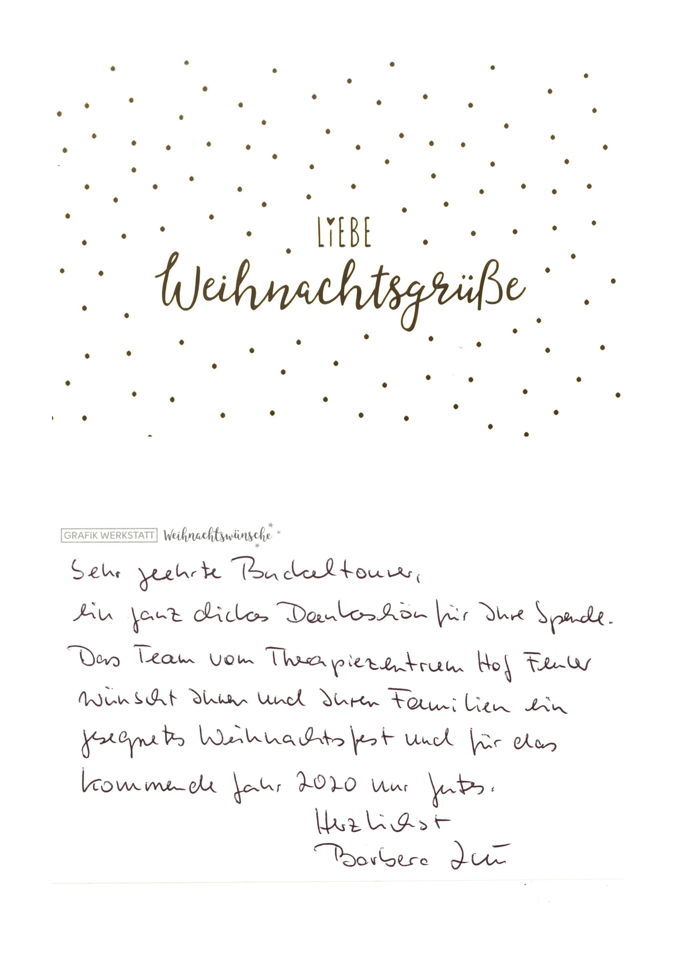 LiEBE
Weihnachtsgrüße
GRAFIK WERKSTATT Weihnachtswünsche
Sehr geehrte Buckeltourer,
ein ganz dickes Dankeschön für Ihre Spende.
Das Team vom Therapiezentrum Hof
wünscht Ihnen und Ihren Familien ein
gesegnetes Weihnachtsfest und für das
kommende Jahr 2020 nur gutes.
Herzlichst
Barbara